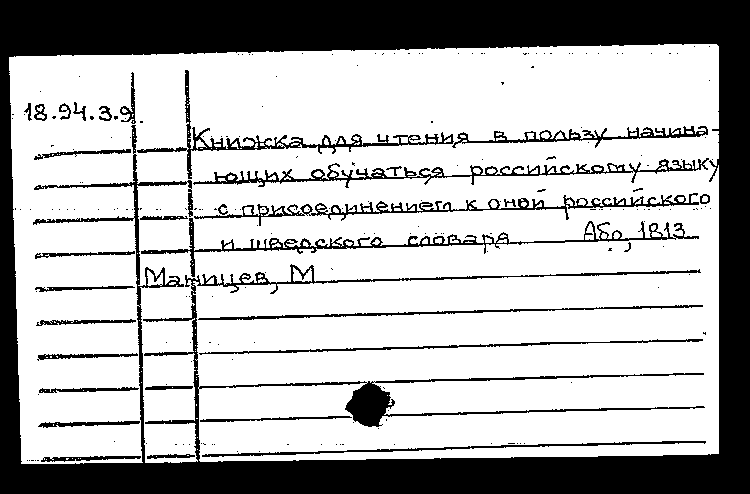 18.94.3.9.
Книжка для чтения в пользу начина-
ющих обучаться российскому языку
с присоединением к оной российского
и шведского словаря. Або, 1813
Маницев, М